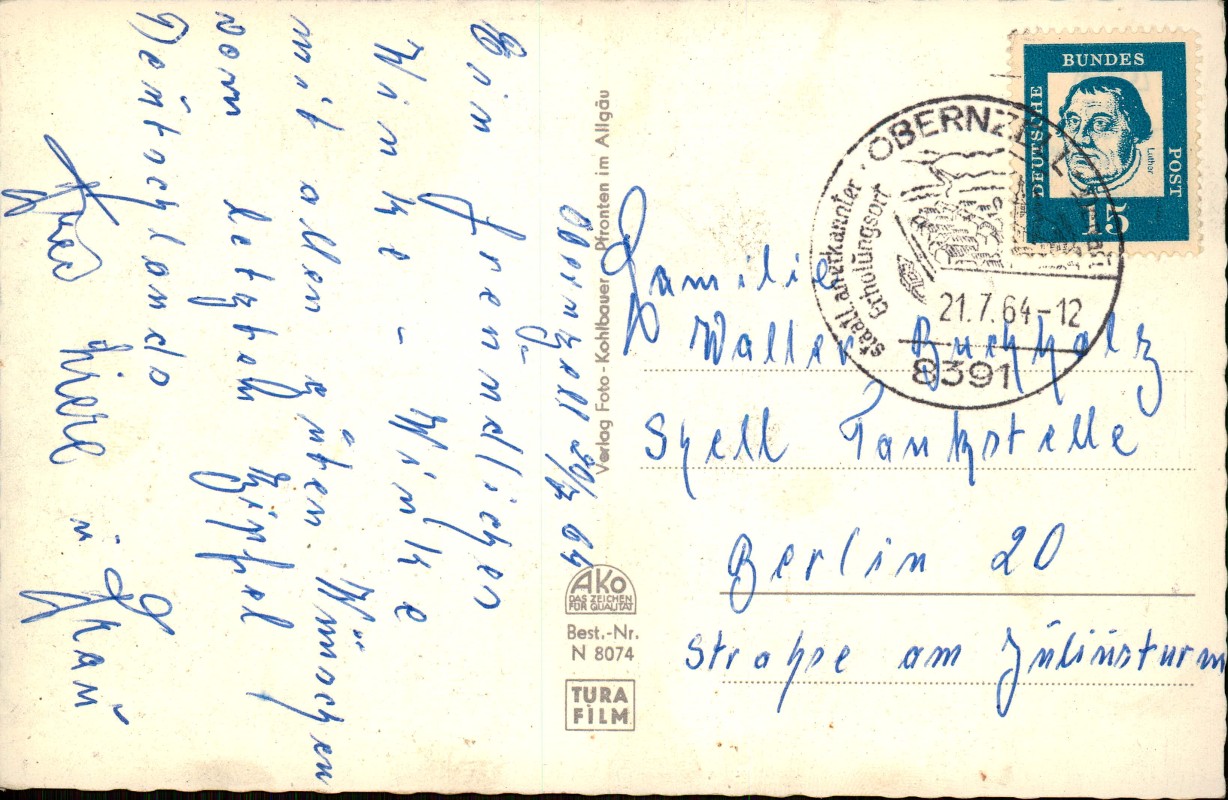 Obernzell 20/7 64
Ein freundlichen
Winke - Winke
mit allen guten Wünschen
vom letzten Zipfel
Deutschlands
u Frau
Verlag Foto - Kohlbauer Pfronten im Allgäu
AKO
DAS ZEICHEN
FÜR QUALITÄT
Best.-Nr.
N 8074
TURA
FILM
DEUTSCHE
BUNDES
POST
Luther
15
OBERNZELL
staatl. anerkannter
Erholungsort
21.7.64-12
8391
Familie
Walter Buchholz
Shell Tankstelle
Berlin 20
Straße am Juliusturm